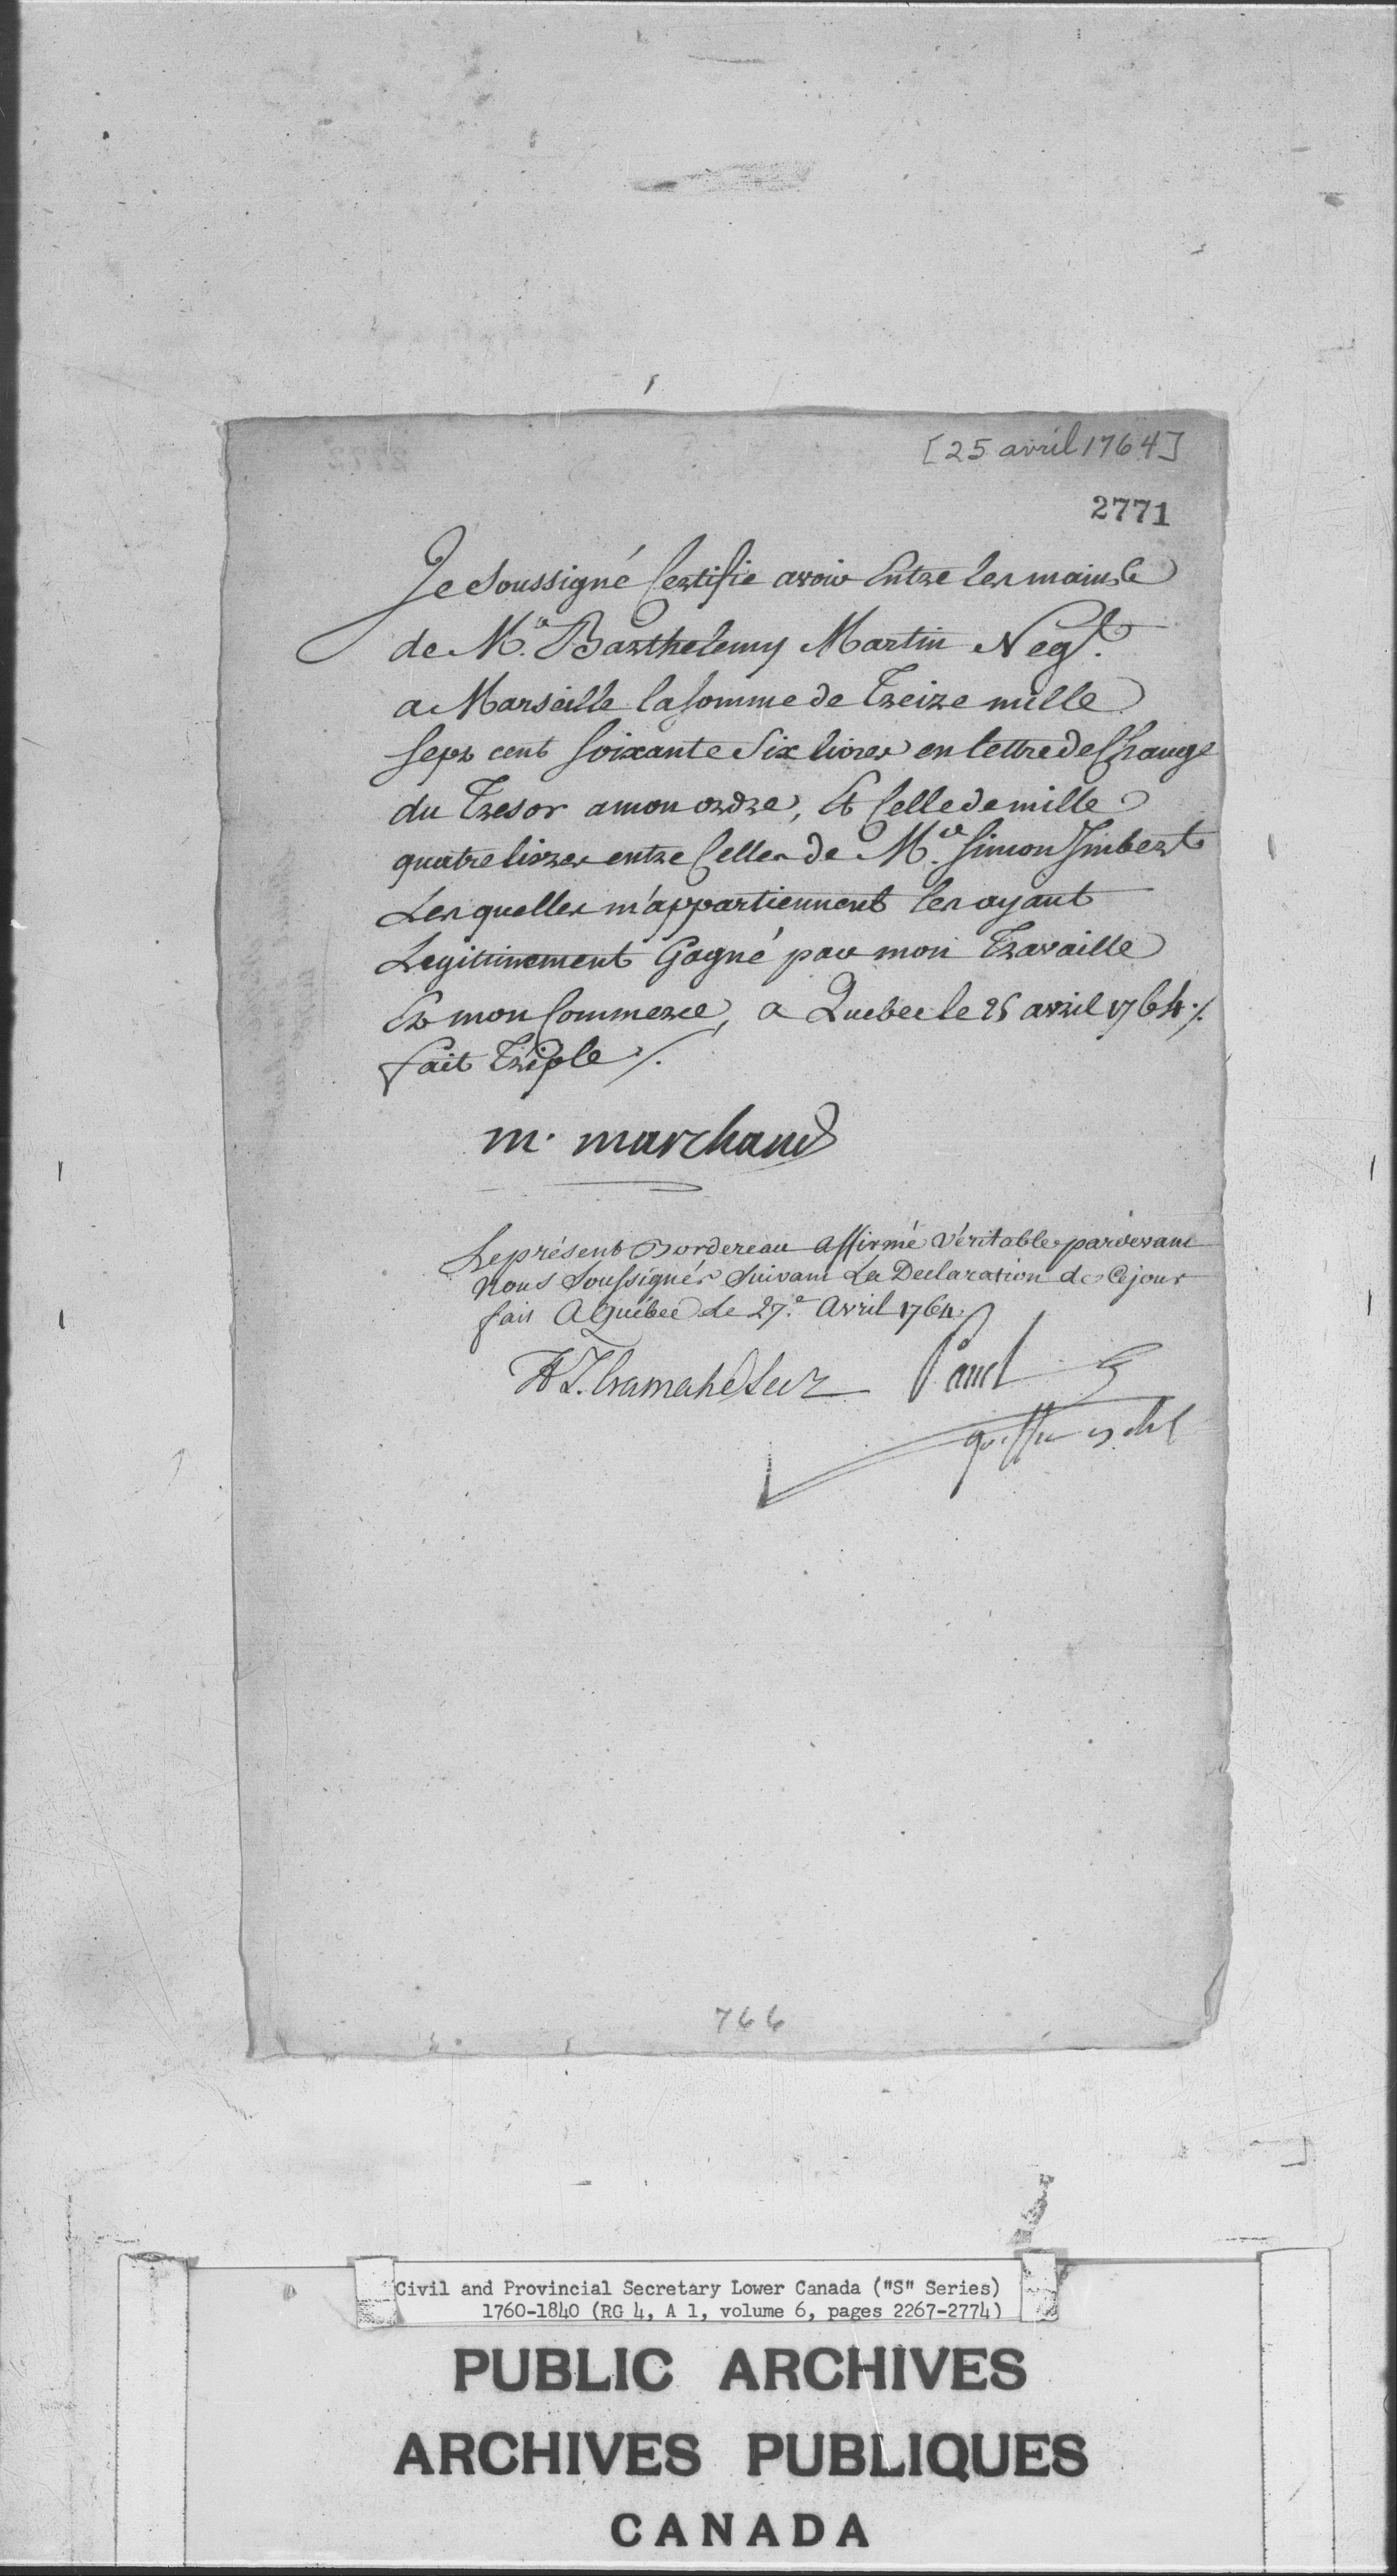 [25 avril 1764]
2771
Je Soussigné Certifie avoir Entre les mains
de Mr. Barthelemy Martin Negt.
a Marseille la Somme de Treize mille
Sept cent Soixante Six livres en lettre de Change
du Tresor a mon ordre, Et Celle de mille
quatre livres entre Celles de Mr. Simon Jmbert
Les quelles m'appartiennent les ayant
Legitimement Gagné par mon Travaille
Et mon Commerce, a Quebec le 25 avril 1764 ./.
fait Triple ./.
m. marchand
Le présent Bordereau affirmé Véritable pardevant
Nous Soussignés Suivant La Declaration de Ce jour
fait A Québec Le 27.e Avril 1764.
H T. Cramahé Secr
Panet
greffier
766
Civil and Provincial Secretary Lower Canada ("S" Series)
1760-1840 (RG 4, A 1, volume 6, pages 2267-2774)
PUBLIC ARCHIVES
ARCHIVES PUBLIQUES
CANADA